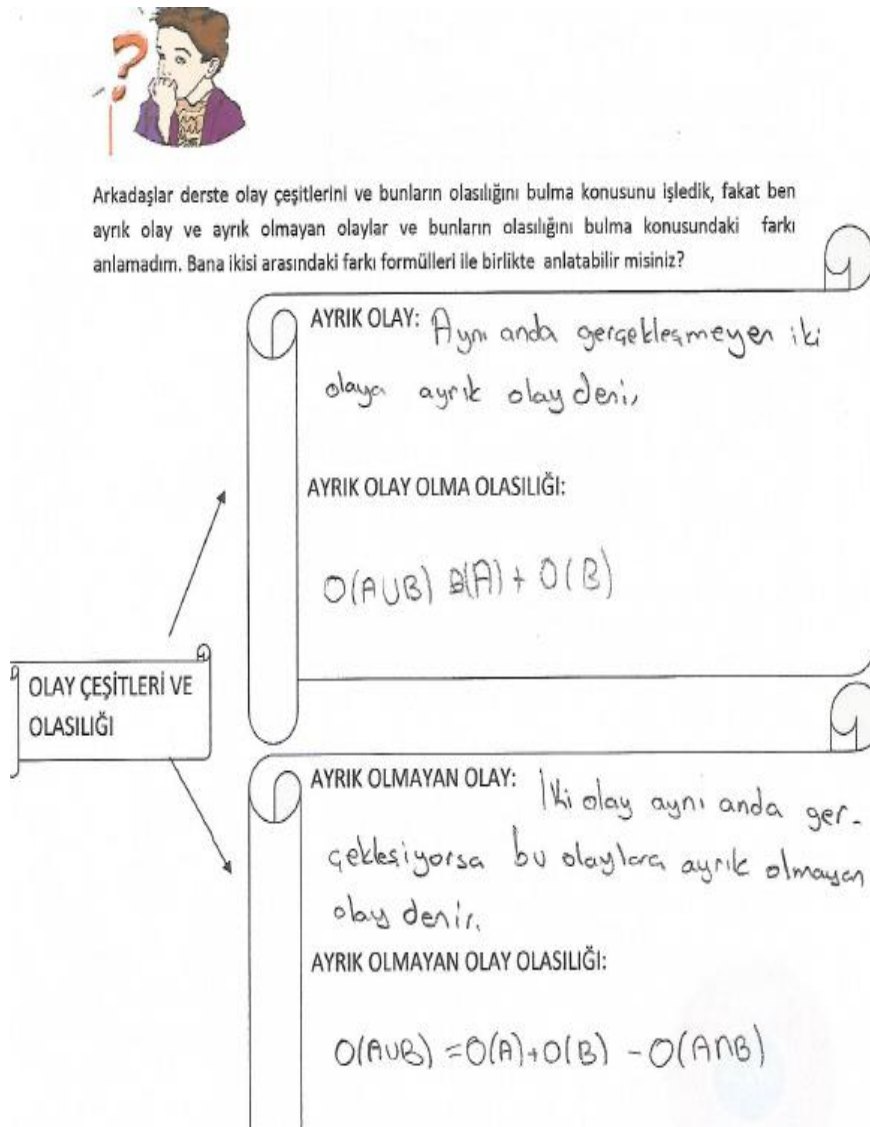 ?
Arkadaşlar derste olay çeşitlerini ve bunların olasılığını bulma konusunu işledik, fakat ben
ayrık olay ve ayrık olmayan olaylar ve bunların olasılığını bulma konusundaki farkı
anlamadım. Bana ikisi arasındaki farkı formülleri ile birlikte anlatabilir misiniz?
AYRIK OLAY: Aynı anda gerçekleşmeyen iki
olaya ayrık olay deni,
AYRIK OLAY OLMA OLASILIĞI:
O(A∪B) (A) + O(B)
OLAY ÇEŞİTLERİ VE
OLASILIĞI
AYRIK OLMAYAN OLAY: İki olay aynı anda ger-
çekleşiyorsa bu olaylara ayrık olmayan
olay denir.
AYRIK OLMAYAN OLAY OLASILIĞI:
O(A∪B) = O(A) + O(B) - O(A∩B)